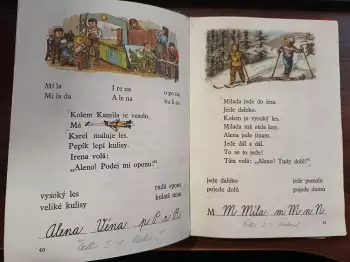 Mí la I re na o po na
Mi la da A le na ku li sa
Kolem Kamila je veselo.
Má
Karel maluje les.
Pepík lepí kulisy.
Irena volá:
„Aleno! Podej mi oponu!“
vysoký les radá opona
veliké kulisy krásná
Alena Věna p P r R
40
Milada jede do lesa.
Jede daleko.
Kolem je vysoký les.
Milada má ráda lesy.
Alena jede jinam.
Jede dál a dál.
To se to jede!
Táta volá: „Aleno! Tudy dolů!“
jede daleko jede pomalu
pojede dolů pojede domů
M M Míla m M n N
41